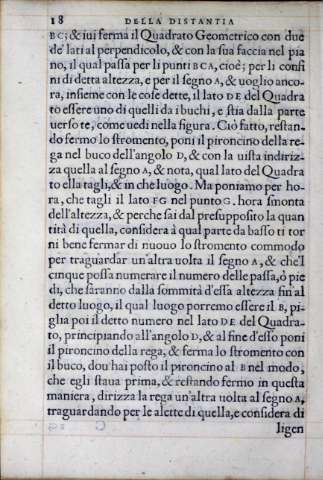 18 DELLA DISTANTIA
BC; & iui ferma il Quadrato Geometrico con due
de' lati al perpendicolo, & con la sua faccia nel pia
no, il qual passa per li punti BCA, cioè; per li confi
ni di detta altezza, e per il segno A, & uoglio anco-
ra, insieme con le cose dette, il lato DE del Quadra
to essere uno di quelli da i buchi, e stia dalla parte
uerso te, come uedi nella figura. Ciò fatto, restan-
do fermo lo stromento, poni il pironcino della re-
ga nel buco dell'angolo D, & con la uista indiriz-
za quella al segno A, & nota, qual lato del Quadra
to ella tagli, & in che luogo. Ma poniamo per ho-
ra, che tagli il lato FG nel punto G. hora smonta
dell'altezza, & perche sai dal presupposito la quan
tità di quella, considera à qual parte da basso ti tor
ni bene fermar di nuouo lo stromento commodo
per traguardar un'altra uolta il segno A, & che'l
cinque possa numerare il numero delle passa, ò pie
di, che saranno dalla sommità d'essa altezza fin'al
detto luogo, il qual luogo porremo essere il B, pi-
glia poi il detto numero nel lato DE del Quadra-
to, principiando all'angolo D, & al fine d'esso poni
il pironcino della rega, & ferma lo stromento con
il buco, dou'hai posto il pironcino al B nel modo,
che egli staua prima, & restando fermo in questa
maniera, dirizza la rega un'altra uolta al segno A,
traguardando per le alette di quella, e considera di
ligen